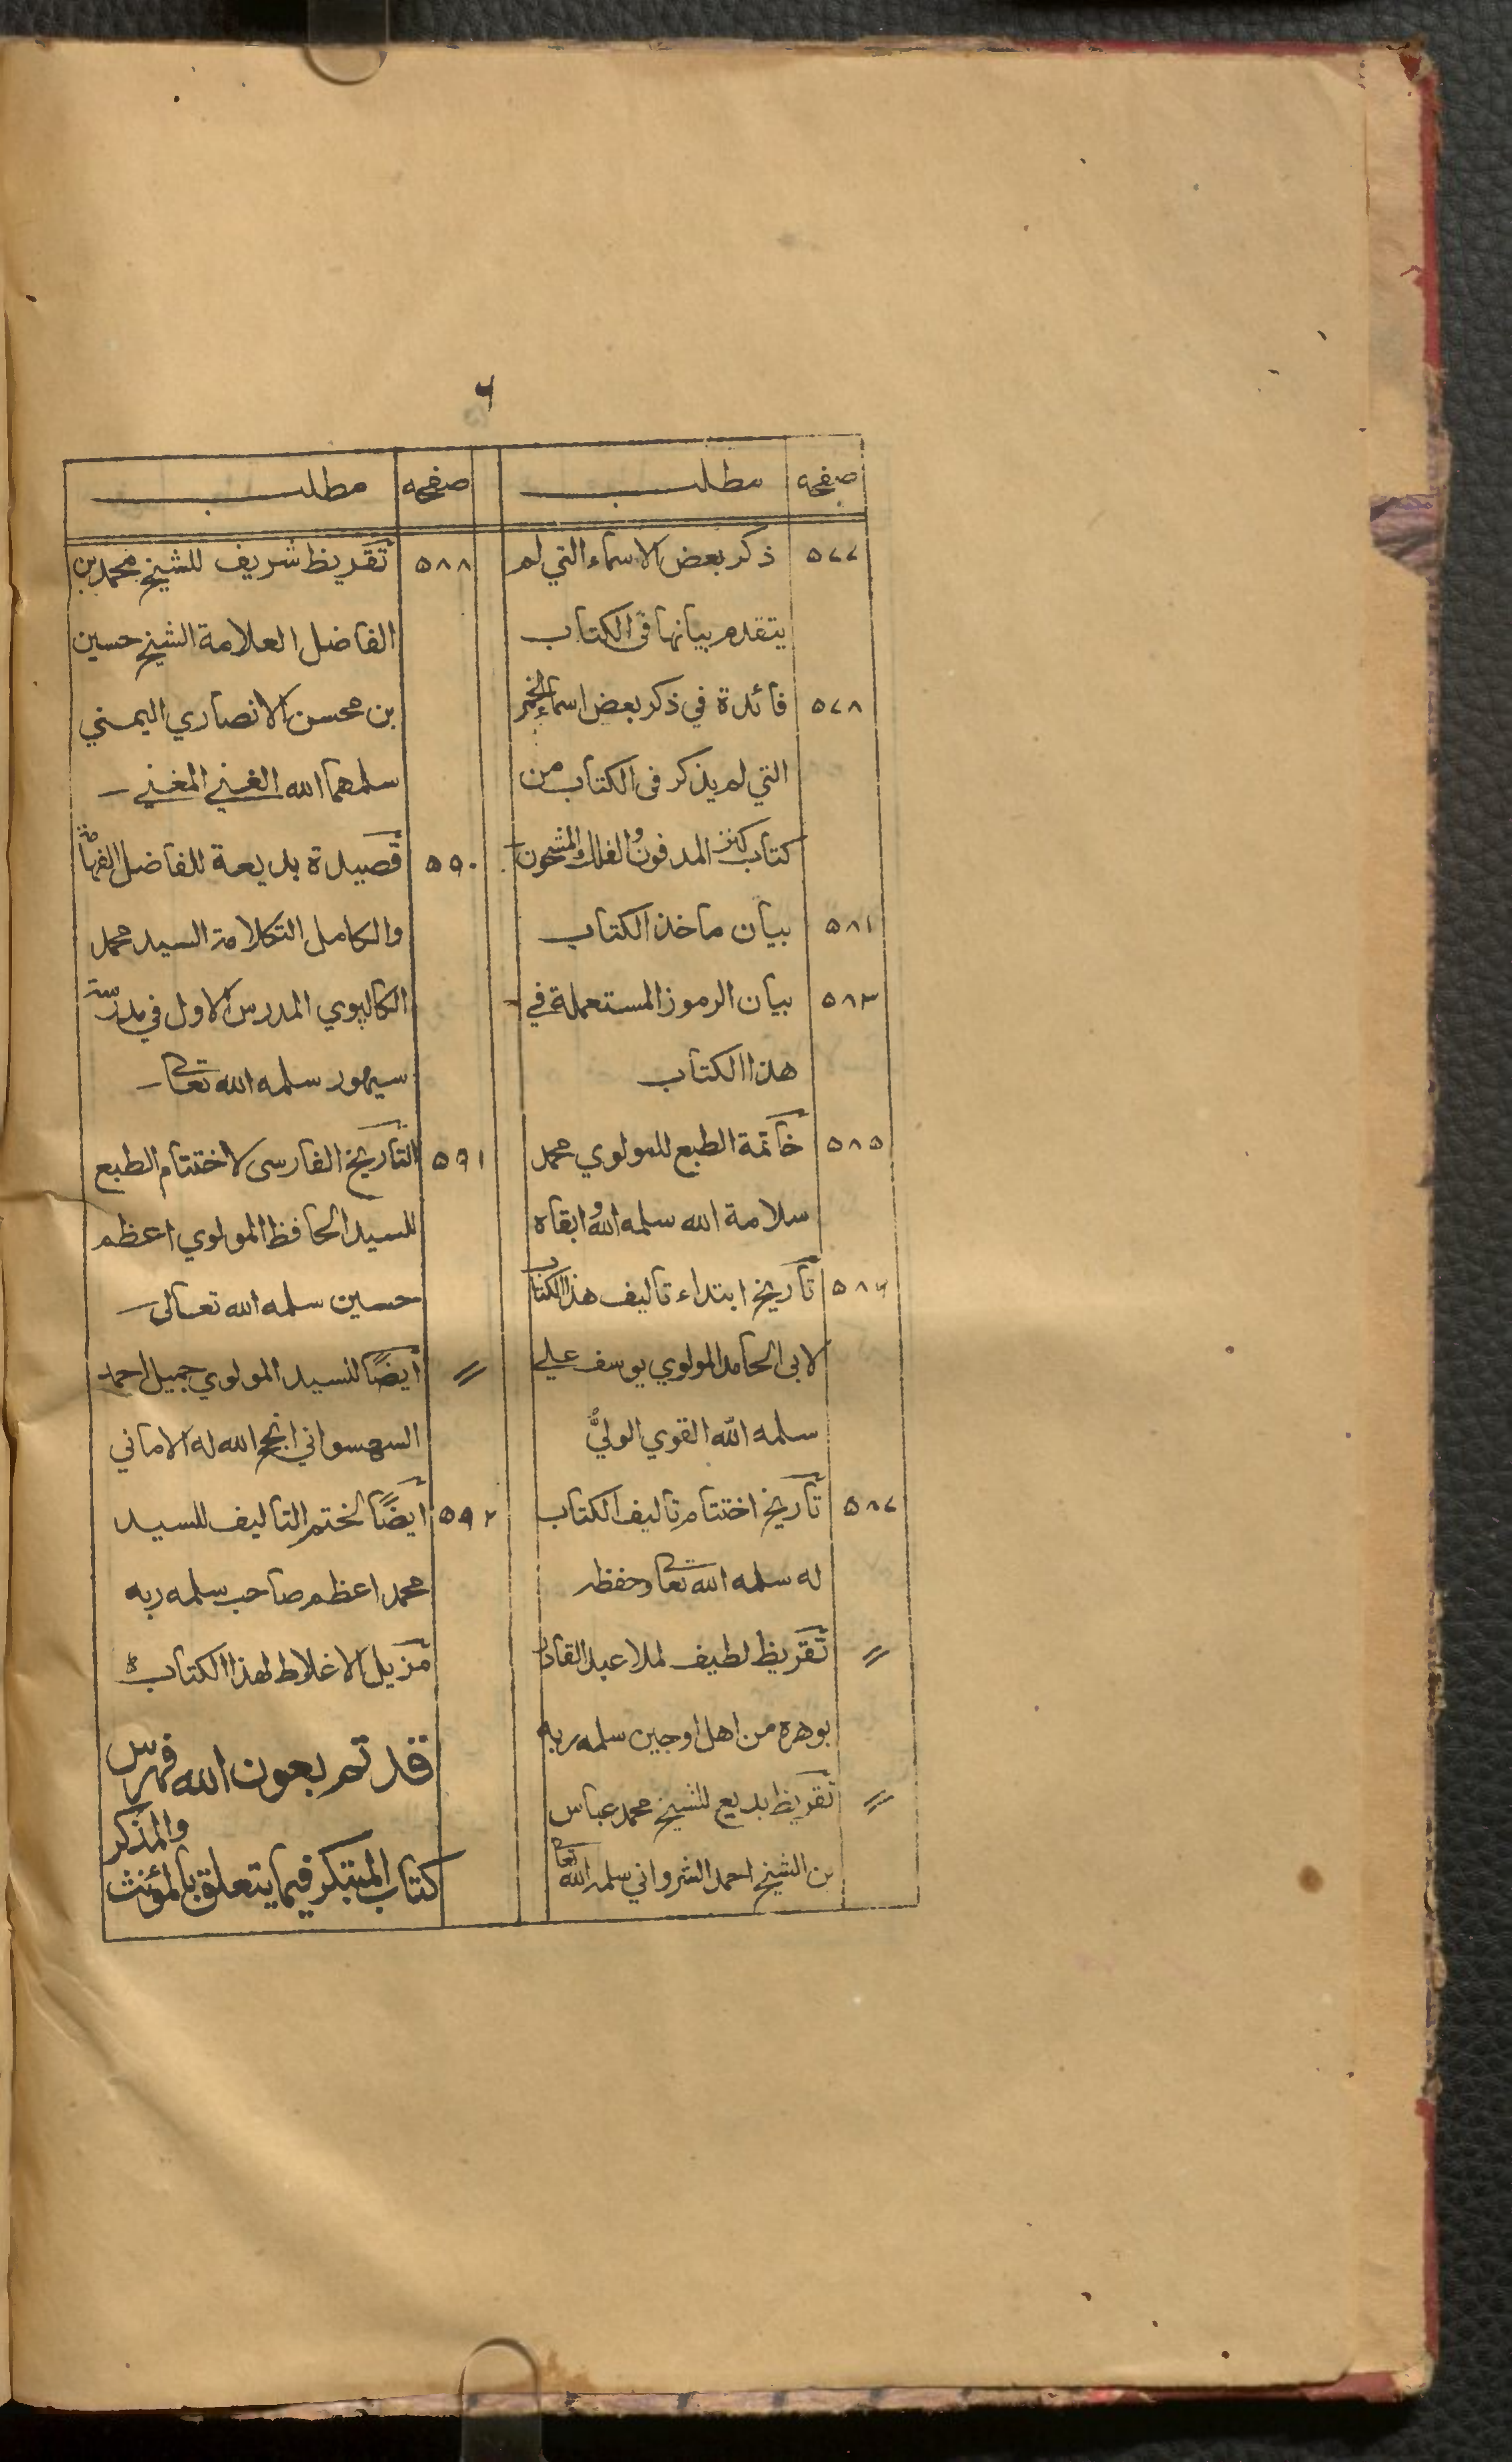 ۶
صفحه مطلب
۵۷۷ ذكر بعض الاسماء التي لم
يتقدم بيانها في الكتاب
۵۷۸ فائدة في ذكر بعض اسماء الخمر
التي لم يذكر في الكتاب من
كتاب كنز المدفون والفلك المشحون
۵۸۱ بيان ماخذ الكتاب
۵۸۳ بيان الرموز المستعملة في
هذا الكتاب
۵۸۵ خاتمة الطبع للمولوي محمد
سلامة الله سلمه الله وابقاه
۵۸۶ تأريخ ابتداء تاليف هذا الكتاب
لابى الحامد المولوي يوسف علي
سلمه الله القوي الوليُّ
۵۸۷ تأريخ اختتام تاليف الكتاب
له سلمه الله تعا وحفظه
〃 تقريظ لطيف لملا عبد القادر
بوهره من اهل اوجين سلمه ربه
〃 تقريظ بديع للشيخ محمد عباس
بن الشيخ احمد الشرواني سلمه الله تعا
صفحه مطلب
۵۸۸ تقريظ شريف للشيخ محمد بن
الفاضل العلامة الشيخ حسين
بن محسن الانصاري اليمني
سلمهما الله الغني المغني
۵۹۰ قصيدة بديعة للفاضل الفهامة
والكامل التكلامة السيد محمد
الكالپوي المدرس الاول في مدرسة
سيهور سلمه الله تعا
۵۹۱ التأريخ الفارسى لاختتام الطبع
للسيد الحافظ المولوي اعظم
حسين سلمه الله تعالى
〃 أيضًا للسيد المولوي جميل احمد
السهسواني انجح الله له الاماني
۵۹۲ أيضًا لختم التاليف للسيد
محمد اعظم صاحب سلمه ربه
مزيل الاغلاط لهذا الكتاب
قد تم بعون الله فهرس
كتاب المبتكر فيما يتعلق بالمؤنث والمذكر